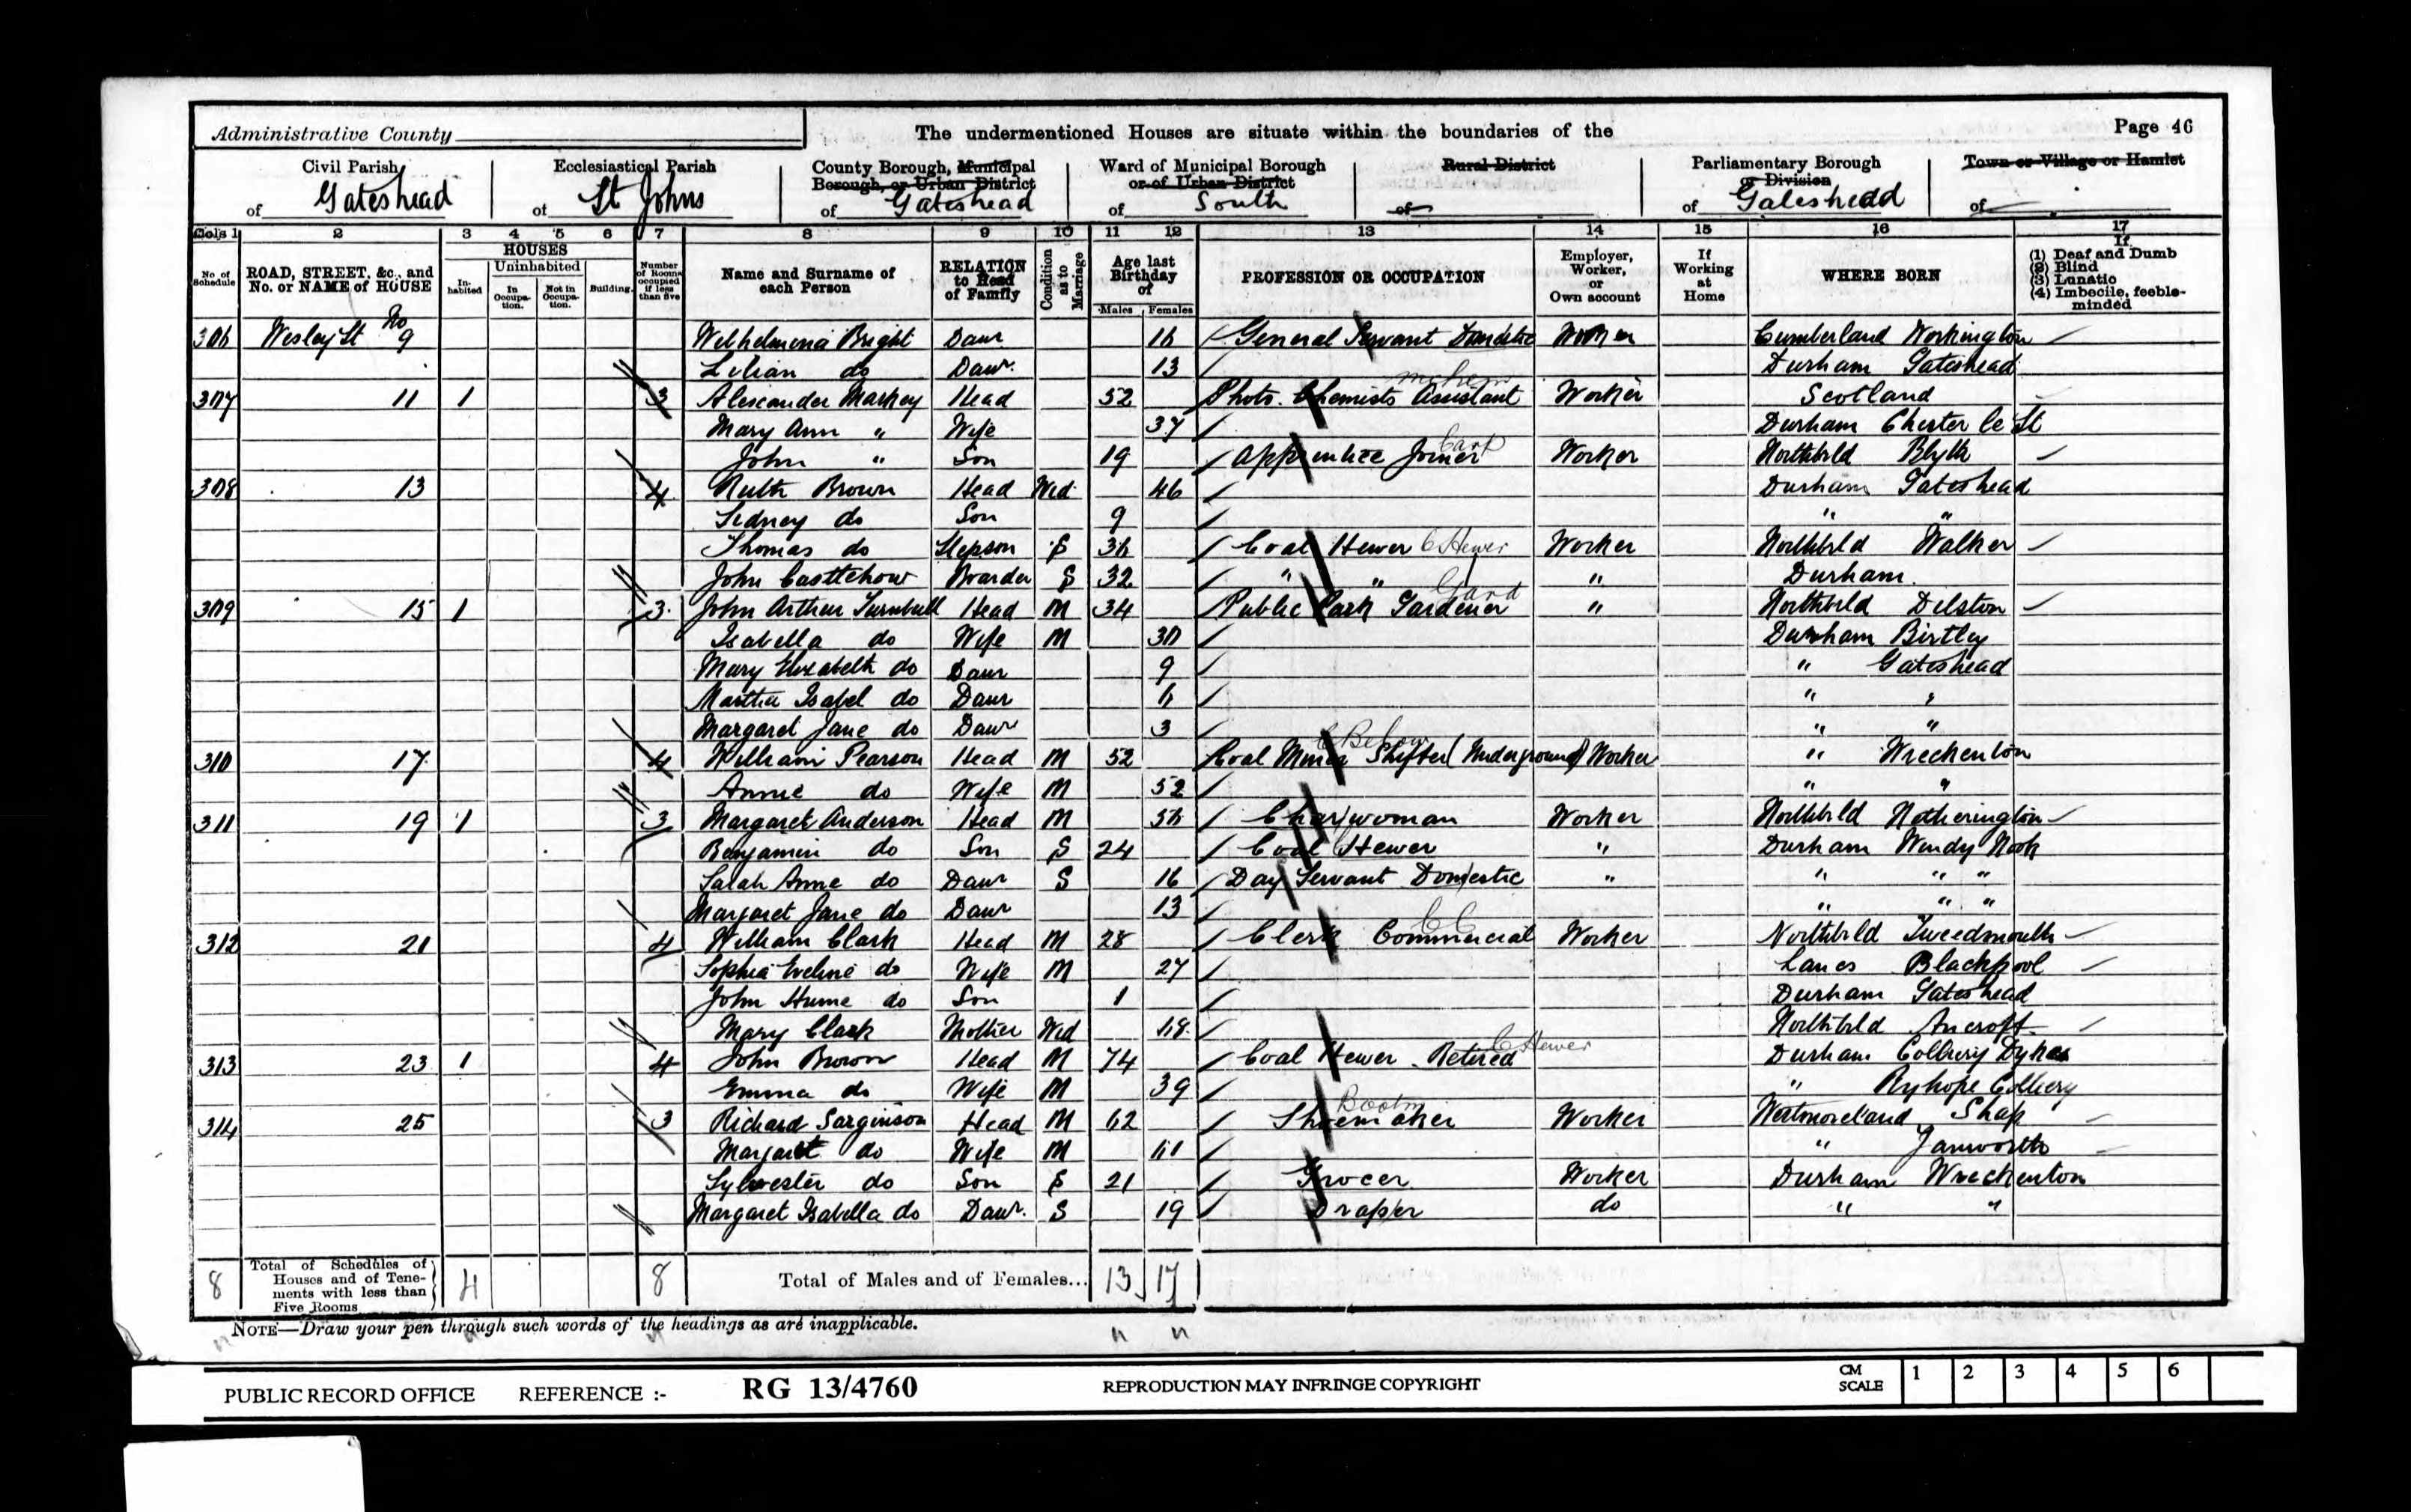 Administrative County
The undermentioned Houses are situate within the boundaries of the
Page 46
Civil Parish of Gateshead
Ecclesiastical Parish of St Johns
County Borough, Municipal Borough, or Urban District of Gateshead
Ward of Municipal Borough or of Urban District of South
Rural District of
Parliamentary Borough or Division of Gateshead
Town or Village or Hamlet of
Cols 1 2 3 4 5 6 7 8 9 10 11 12 13 14 15 16 17
No. of Schedule
ROAD, STREET, &c., and No. or NAME of HOUSE
HOUSES
Inhabited
Uninhabited
In Occupation.
Not in Occupation.
Building.
Number of Rooms occupied if less than five
Name and Surname of each Person
RELATION to Head of Family
Condition as to Marriage
Age last Birthday of
Males Females
PROFESSION OR OCCUPATION
Employer, Worker, or Own account
If Working at Home
WHERE BORN
If (1) Deaf and Dumb (2) Blind (3) Lunatic (4) Imbecile, feeble-minded
306 Wesley St No 9 Wilhelmena Bright Daur 16 General Servant Domestic Worker Cumberland Workington
Lilian do Daur. 13 Durham Gateshead
307 11 1 3 Alexander Markey Head 52 Photo. Chemists Assistant Worker Scotland
Mary Ann " Wife 37 Durham Chester le St
John " Son 19 Apprentice Joiner Carp Worker Northbld Blyth
308 13 4 Ruth Brown Head Wid 46 Durham Gateshead
Sidney do Son 9 " "
Thomas do Stepson S 36 Coal Hewer C Hewer Worker Northbld Walker
John Castlehow Boarder S 32 " " " Durham.
309 15 1 3 John Arthur Turnbull Head M 34 Public Park Gardener Gard " Northbld Dilston
Isabella do Wife M 30 Durham Birtley
Mary Elizabeth do Daur 9 " Gateshead
Martha Isabel do Daur 6 " "
Margaret Jane do Daur 3 " "
310 17 4 William Pearson Head M 52 Coal Miner Shifter (Underground) C Below Worker " Wreckenton
Annie do Wife M 52 " "
311 19 1 3 Margaret Anderson Head M 56 Charwoman Worker Northbld Netherington
Benjamin do Son S 24 Coal Hewer " Durham Windy Nook
Sarah Anne do Daur S 16 Day Servant Domestic " " " "
Margaret Jane do Daur 13 " " "
312 21 4 William Clark Head M 28 Clerk Commercial CC Worker Northbld Tweedmouth
Sophia Eveline do Wife M 27 Lancs Blackpool
John Hume do Son 1 Durham Gateshead
Mary Clark Mother Wid 68 Northbld Ancroft
313 23 1 4 John Brown Head M 74 Coal Hewer. Retired C Hewer Durham Colliery Dykes
Emma do Wife M 39 " Ryhope Colliery
314 25 3 Richard Sarginson Head M 62 Shoemaker Bootm Worker Westmoreland Shap
Margaret do Wife M 61 "
Sylvester do Son S 21 Grocer Worker Durham Wreckenton
Margaret Isabella do Daur. S 19 Draper do " "
8 Total of Schedules of Houses and of Tenements with less than Five Rooms 4 8 Total of Males and of Females... 13 17
NOTE—Draw your pen through such words of the headings as are inapplicable.
PUBLIC RECORD OFFICE REFERENCE :- RG 13/4760 REPRODUCTION MAY INFRINGE COPYRIGHT CM SCALE 1 2 3 4 5 6